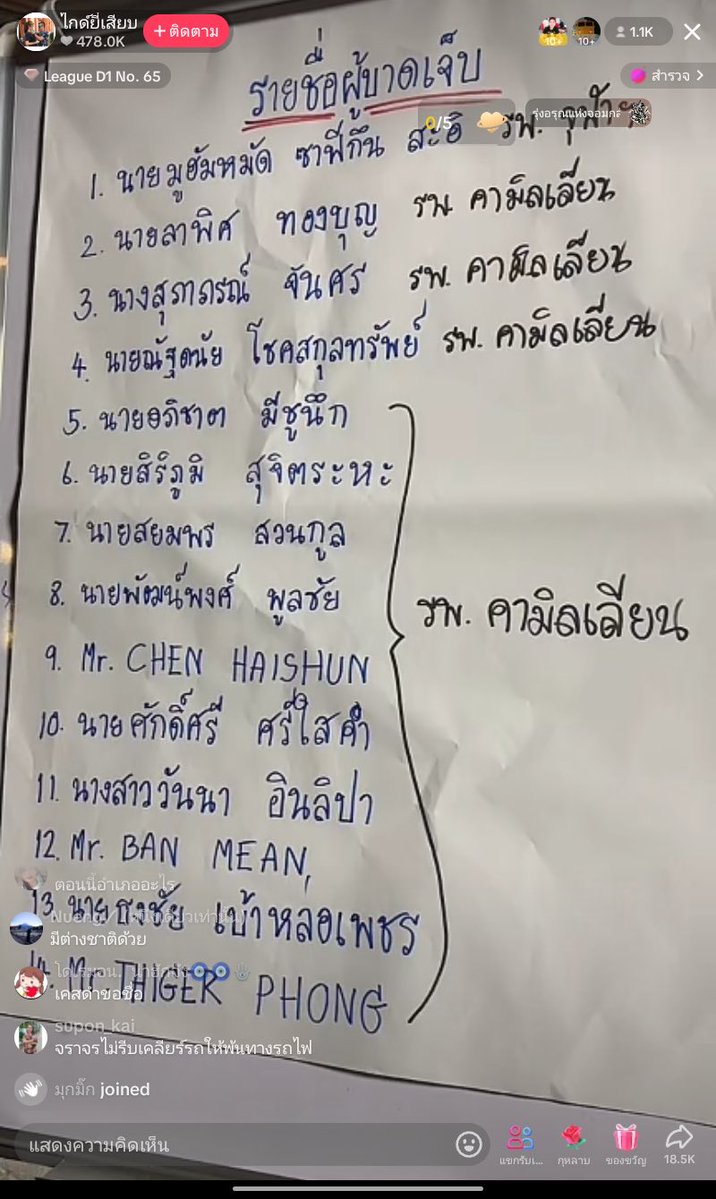 ไกด์ยี่เสียบ
478.0K
+ ติดตาม
10+
10+
1.1K
League D1 No. 65
สำรวจ >
รายชื่อผู้บาดเจ็บ
0/5
รุ่งอรุณแห่งจอมกล
1. นายมูฮัมหมัด ซาฟีกึน สะอิ รพ.
2. นายลาพิศ ทองบุญ รพ. คามิลเลียน
3. นางสุภาภรณ์ จันศรี รพ. คามิลเลียน
4. นายณัฐดนัย โชคสกุลทรัพย์ รพ. คามิลเลียน
5. นายอภิชาต มีชูนึก
6. นายสิริภูมิ สุจิตระหะ
7. นายสยมพร สวนกูล
8. นายพัฒน์พงศ์ พูลชัย
รพ. คามิลเลียน
9. Mr. CHEN HAISHUN
10. นายศักดิ์ศรี ศรีใสคำ
11. นางสาววันนา อินลิปา
12. Mr. BAN MEAN
13 นายธงชัย เบ้าหลอเพชร
14. Mr. THIGER PHONG
ตอนนี้อำเภออะไร
มีต่างชาติด้วย
เคสดำขอชื่อ
supon_kai
จราจรไม่รีบเคลียร์รถให้พ้นทางรถไฟ
มุกมิ๊ก joined
แสดงความคิดเห็น
แขกรับเ...
กุหลาบ
ของขวัญ
18.5K